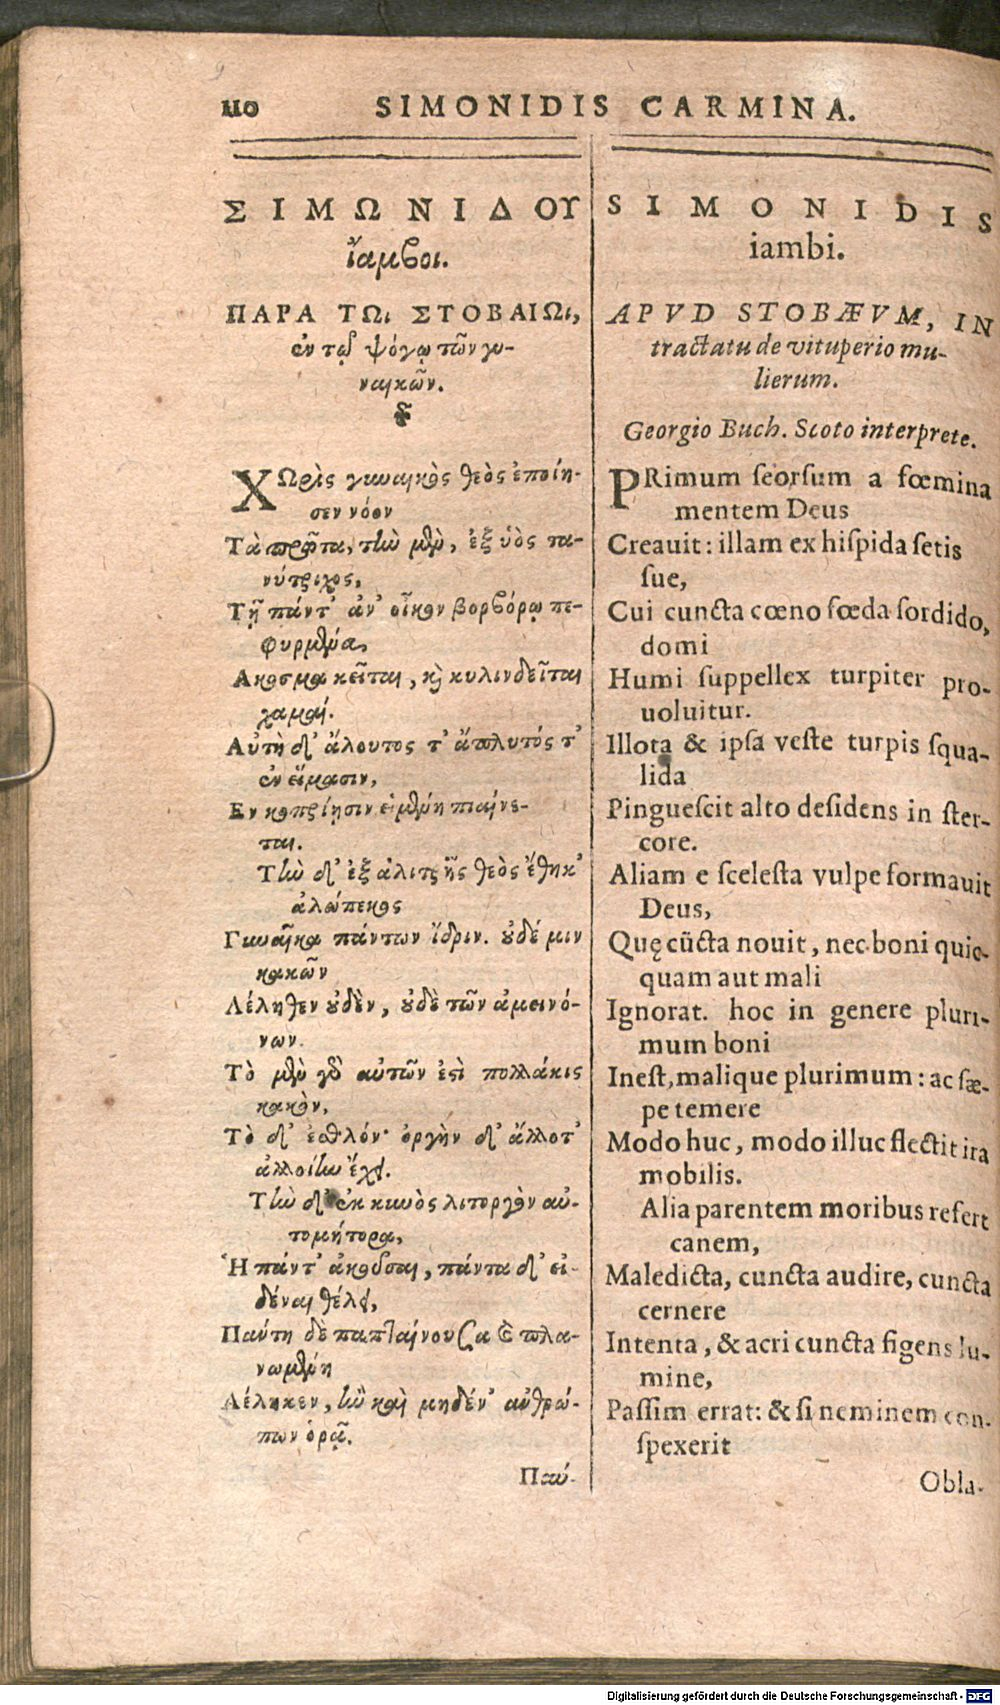 110 SIMONIDIS CARMINA.
ΣΙΜΩΝΙΔΟΥ
ἴαμβοι.
ΠΑΡΑ ΤΩι ΣΤΟΒΑΙΩι,
ἐν τῷ ψόγῳ τῶν γυ-
ναικῶν.
ΧΩρὶς γυναικὸς θεὸς ἐποίη-
σεν νόον
Τὰ πρῶτα, τὴν μὲν, ἐξ ὑὸς τα-
νύτριχος,
Τῇ πάντ' ἀν' οἶκον βορβόρῳ πε-
φυρμένα,
Ακοσμα κεῖται, καὶ κυλινδεῖται
χαμαί.
Αὐτὴ δ' ἄλουτος τ' ἄπλυτός τ'
ἐν εἵμασιν,
Εν κοπρίῃσιν εἱμένη πιαίνε-
ται.
Τὴν δ' ἐξ ἀλιτρῆς θεὸς ἔθηκ'
ἀλώπεκος
Γυναῖκα πάντων ἴδριν. οὐδέ μιν
κακῶν
Λέληθεν οὐδὲν, οὐδὲ τῶν ἀμεινό-
νων.
Τὸ μὲν γὰρ αὐτῶν ἐστὶ πολλάκις
κακὸν,
Τὸ δ' ἐσθλόν· ὀργὴν δ' ἄλλοτ'
ἀλλοίην ἔχει.
Τὴν δ' ἐκ κυνὸς λιτοργὸν αὐ-
τομήτορα,
Ἡ πάντ' ἀκοῦσαι, πάντα δ' εἰ-
δέναι θέλει,
Παύτη δὲ παπταίνουσα καὶ πλα-
νωμένη
Λέληκεν, ἢν καὶ μηδέν' ἀνθρώ-
πων ὁρᾷ.
Παύ-
SIMONIDIS
iambi.
APVD STOBÆVM, IN
tractatu de vituperio mu-
lierum.
Georgio Buch. Scoto interprete.
PRimum seorsum a fœmina
mentem Deus
Creauit: illam ex hispida setis
sue,
Cui cuncta cœno fœda sordido,
domi
Humi suppellex turpiter pro-
uoluitur.
Illota & ipsa veste turpis squa-
lida
Pinguescit alto desidens in ster-
core.
Aliam e scelesta vulpe formauit
Deus,
Quę cūcta nouit, nec boni quic-
quam aut mali
Ignorat. hoc in genere pluri-
mum boni
Inest, malique plurimum: ac sæ-
pe temere
Modo huc, modo illuc flectit ira
mobilis.
Alia parentem moribus refert
canem,
Maledicta, cuncta audire, cuncta
cernere
Intenta, & acri cuncta figens lu-
mine,
Passim errat: & si neminem con-
spexerit
Obla-
Digitalisierung gefördert durch die Deutsche Forschungsgemeinschaft - DFG